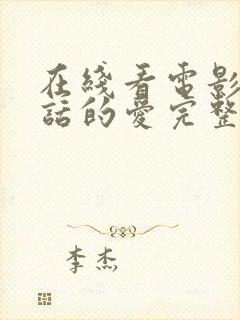 在綫看電影
話的愛完整
李杰